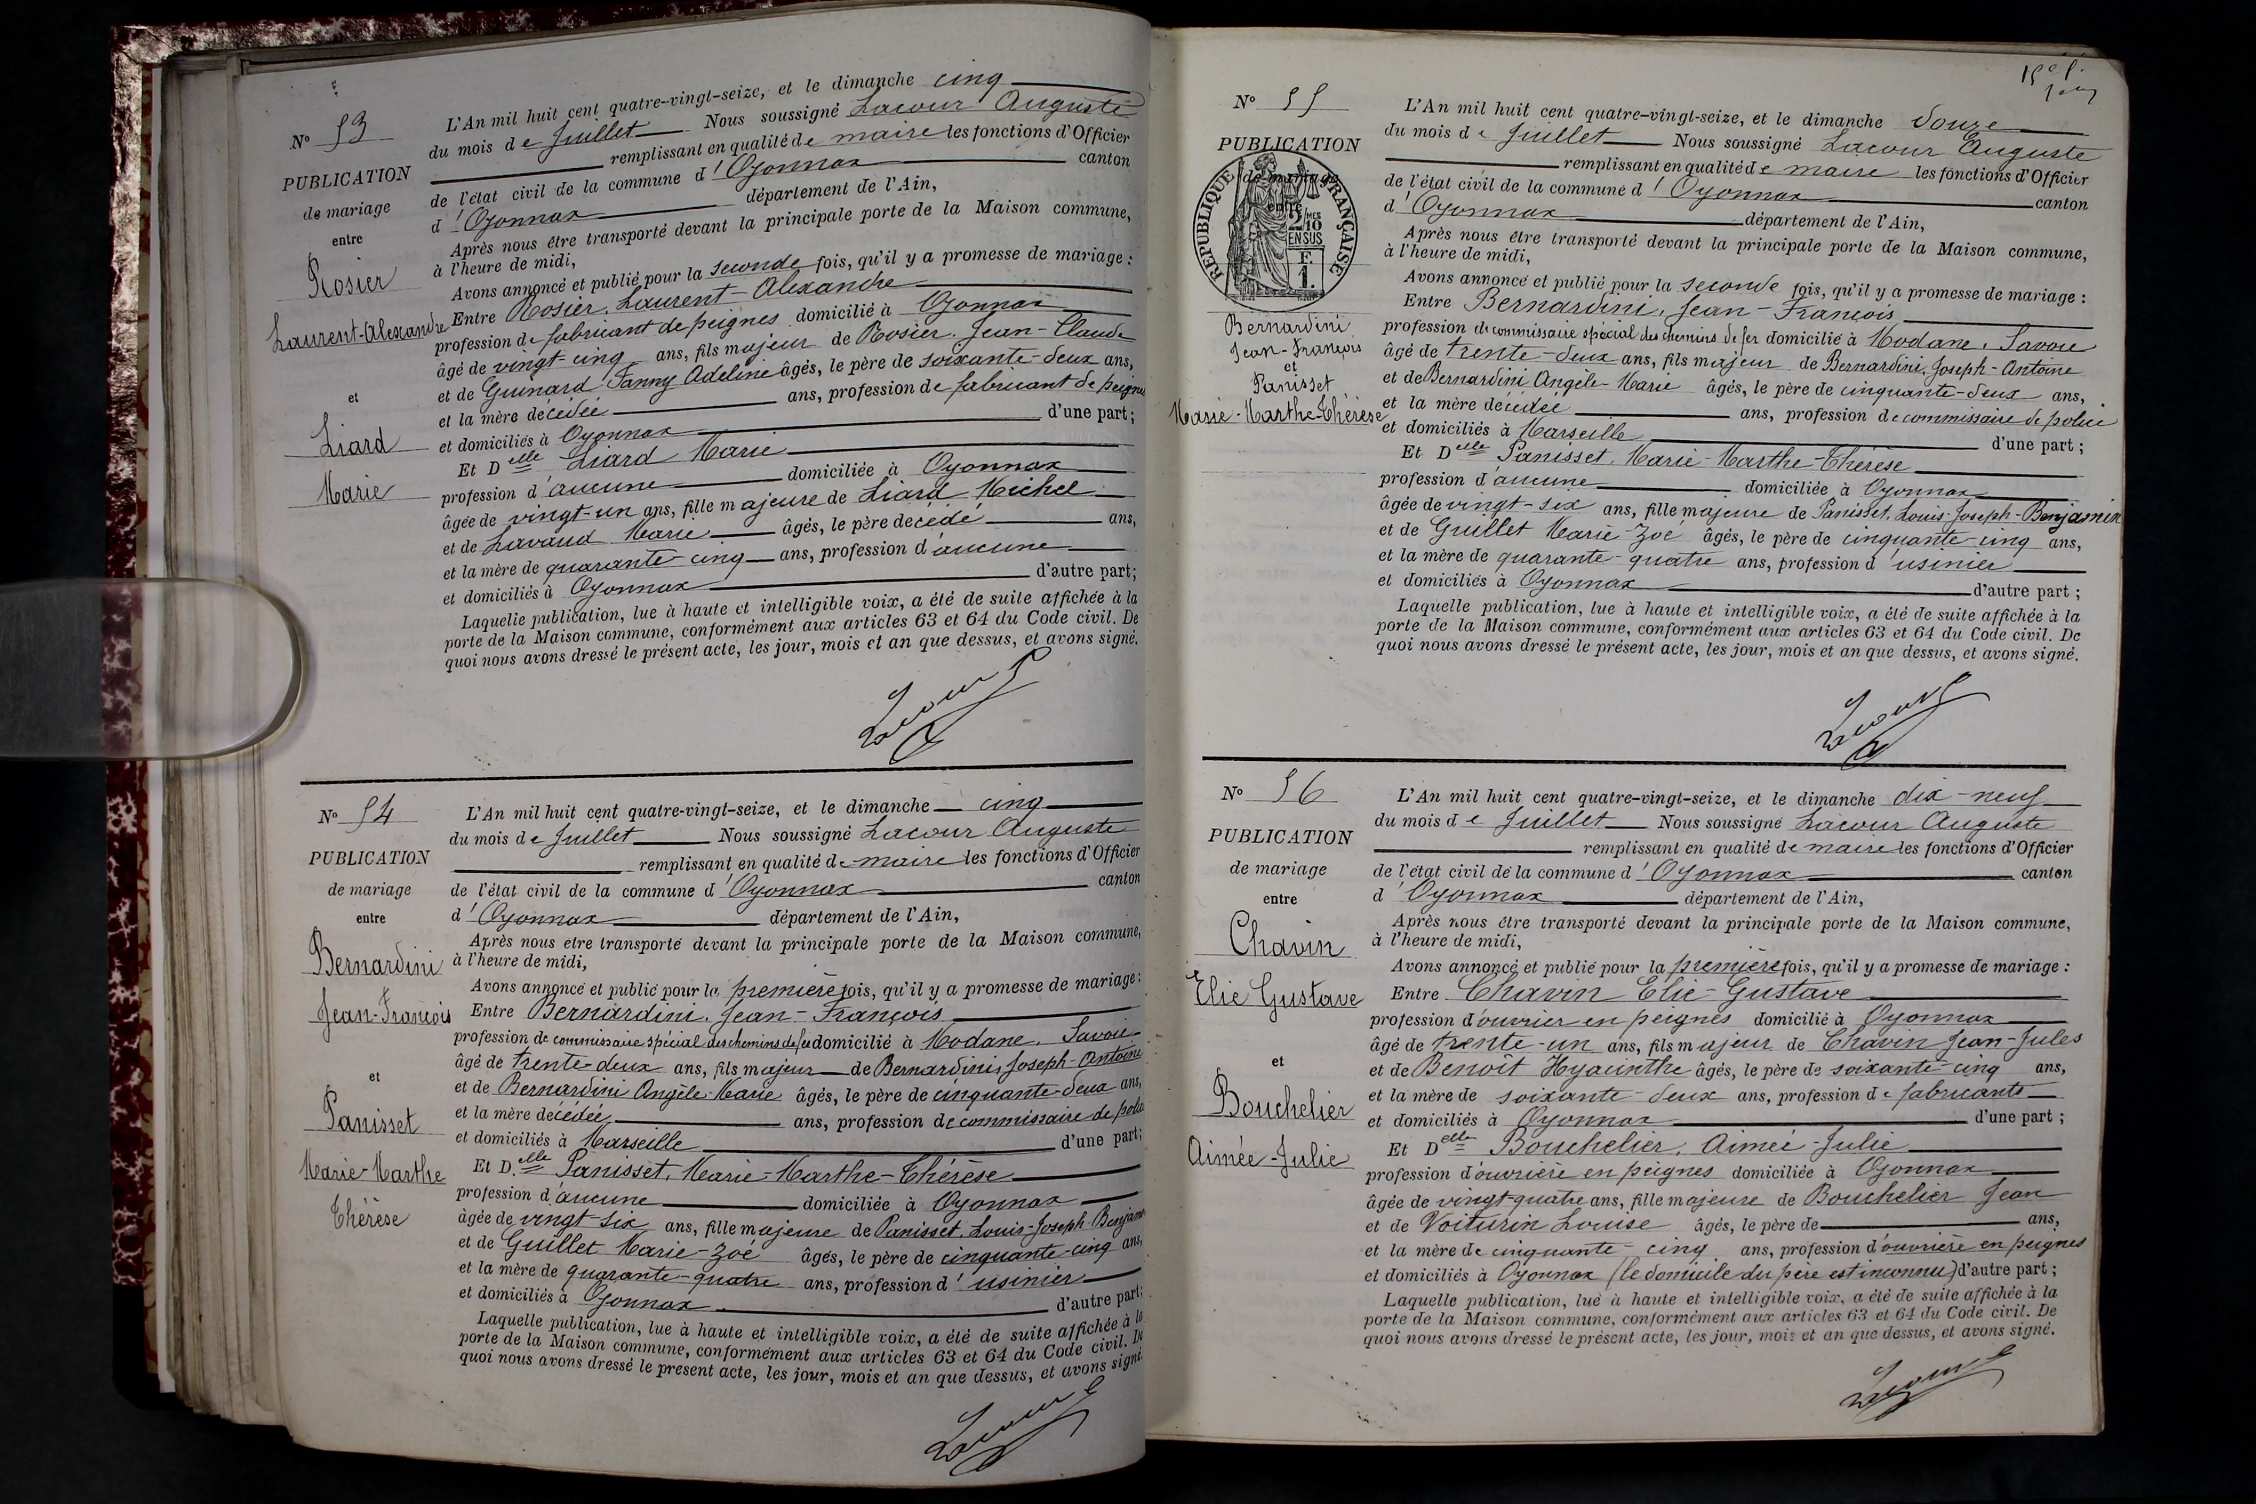 N° 53
PUBLICATION
de mariage
entre
Rosier
Laurent-Alexandre
et
Liard
Marie
L'An mil huit cent quatre-vingt-seize, et le dimanche cinq
du mois de Juillet Nous soussigné Lacour Auguste
remplissant en qualité de maire les fonctions d'Officier
de l'état civil de la commune d'Oyonnax canton
d'Oyonnax département de l'Ain,
Après nous être transporté devant la principale porte de la Maison commune,
à l'heure de midi,
Avons annoncé et publié pour la seconde fois, qu'il y a promesse de mariage :
Entre Rosier, Laurent-Alexandre
profession de fabricant de peignes domicilié à Oyonnax
âgé de vingt-cinq ans, fils majeur de Rosier, Jean-Claude
et de Guinard Fanny Adeline âgés, le père de soixante-deux ans,
et la mère décédée ans, profession de fabricant de peignes
et domiciliés à Oyonnax d'une part ;
Et Delle Liard Marie
profession d'aucune domiciliée à Oyonnax
âgée de vingt-un ans, fille majeure de Liard Michel
et de Lavaud Marie âgés, le père décédé ans,
et la mère de quarante-cinq ans, profession d'aucune
et domiciliés à Oyonnax d'autre part;
Laquelle publication, lue à haute et intelligible voix, a été de suite affichée à la
porte de la Maison commune, conformément aux articles 63 et 64 du Code civil. De
quoi nous avons dressé le présent acte, les jour, mois et an que dessus, et avons signé.
Lacour
N° 54
PUBLICATION
de mariage
entre
Bernardini
Jean-François
et
Panisset
Marie-Marthe
Thérèse
L'An mil huit cent quatre-vingt-seize, et le dimanche cinq
du mois de Juillet Nous soussigné Lacour Auguste
remplissant en qualité de maire les fonctions d'Officier
de l'état civil de la commune d'Oyonnax canton
d'Oyonnax département de l'Ain,
Après nous être transporté devant la principale porte de la Maison commune,
à l'heure de midi,
Avons annoncé et publié pour la première fois, qu'il y a promesse de mariage :
Entre Bernardini, Jean-François
profession de commissaire spécial des chemins de fer domicilié à Modane, Savoie
âgé de trente-deux ans, fils majeur de Bernardini, Joseph-Antoine
et de Bernardini Angèle-Marie âgés, le père de cinquante-deux ans,
et la mère décédée ans, profession de commissaire de police
et domiciliés à Marseille d'une part;
Et Delle Panisset, Marie-Marthe-Thérèse
profession d'aucune domiciliée à Oyonnax
âgée de vingt-six ans, fille majeure de Panisset, Louis-Joseph-Benjamin
et de Guillet Marie-Zoé âgés, le père de cinquante-cinq ans,
et la mère de quarante-quatre ans, profession d'usinier
et domiciliés à Oyonnax d'autre part;
Laquelle publication, lue à haute et intelligible voix, a été de suite affichée à la
porte de la Maison commune, conformément aux articles 63 et 64 du Code civil. De
quoi nous avons dressé le présent acte, les jour, mois et an que dessus, et avons signé.
Lacour
N° 55
PUBLICATION
de mariage
entre
RÉPUBLIQUE FRANÇAISE
2/10 MES
EN SUS
F.
1.
Bernardini
Jean-François
et
Panisset
Marie-Marthe-Thérèse
L'An mil huit cent quatre-vingt-seize, et le dimanche douze
du mois de Juillet Nous soussigné Lacour Auguste
remplissant en qualité de maire les fonctions d'Officier
de l'état civil de la commune d'Oyonnax canton
d'Oyonnax département de l'Ain,
Après nous être transporté devant la principale porte de la Maison commune,
à l'heure de midi,
Avons annoncé et publié pour la seconde fois, qu'il y a promesse de mariage :
Entre Bernardini, Jean-François
profession de commissaire spécial des chemins de fer domicilié à Modane, Savoie
âgé de trente-deux ans, fils majeur de Bernardini, Joseph-Antoine
et de Bernardini Angèle-Marie âgés, le père de cinquante-deux ans,
et la mère décédée ans, profession de commissaire de police
et domiciliés à Marseille d'une part ;
Et Delle Panisset, Marie-Marthe-Thérèse
profession d'aucune domiciliée à Oyonnax
âgée de vingt-six ans, fille majeure de Panisset, Louis-Joseph-Benjamin
et de Guillet Marie-Zoé âgés, le père de cinquante-cinq ans,
et la mère de quarante-quatre ans, profession d'usinier
et domiciliés à Oyonnax d'autre part ;
Laquelle publication, lue à haute et intelligible voix, a été de suite affichée à la
porte de la Maison commune, conformément aux articles 63 et 64 du Code civil. De
quoi nous avons dressé le présent acte, les jour, mois et an que dessus, et avons signé.
Lacour
N° 56
PUBLICATION
de mariage
entre
Chavin
Elie Gustave
et
Bouchelier
Aimée-Julie
L'An mil huit cent quatre-vingt-seize, et le dimanche dix-neuf
du mois de Juillet Nous soussigné Lacour Auguste
remplissant en qualité de maire les fonctions d'Officier
de l'état civil de la commune d'Oyonnax canton
d'Oyonnax département de l'Ain,
Après nous être transporté devant la principale porte de la Maison commune,
à l'heure de midi,
Avons annoncé et publié pour la première fois, qu'il y a promesse de mariage :
Entre Chavin Elie-Gustave
profession d'ouvrier en peignes domicilié à Oyonnax
âgé de trente-un ans, fils majeur de Chavin Jean-Jules
et de Benoît Hyacinthe âgés, le père de soixante-cinq ans,
et la mère de soixante-deux ans, profession de fabricants
et domiciliés à Oyonnax d'une part ;
Et Delle Bouchelier, Aimée-Julie
profession d'ouvrière en peignes domiciliée à Oyonnax
âgée de vingt-quatre ans, fille majeure de Bouchelier Jean
et de Voiturin Louise âgés, le père de ans,
et la mère de cinquante-cinq ans, profession d'ouvrière en peignes
et domiciliés à Oyonnax (le domicile du père est inconnu) d'autre part ;
Laquelle publication, lue à haute et intelligible voix, a été de suite affichée à la
porte de la Maison commune, conformément aux articles 63 et 64 du Code civil. De
quoi nous avons dressé le présent acte, les jour, mois et an que dessus, et avons signé.
Lacour